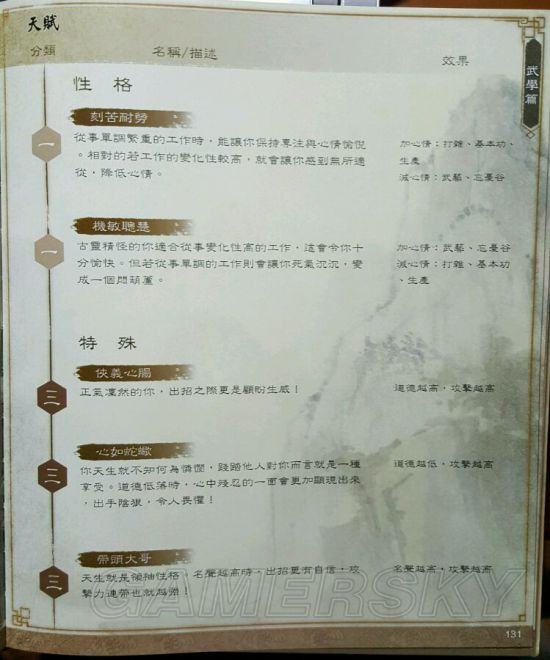 天賦
分類 名稱/描述 效果
武學篇
性格
刻苦耐勞
一
從事單調繁重的工作時，能讓你保持專注與心情愉悅
。相對的若工作的變化性較高，就會讓你感到無所適
從，降低心情。
加心情：打雜、基本功、
生產
減心情：武藝、忘憂谷
機敏聰慧
一
古靈精怪的你適合從事變化性高的工作，這會令你十
分愉快。但若從事單調的工作則會讓你死氣沉沉，變
成一個悶葫蘆。
加心情：武藝、忘憂谷
減心情：打雜、基本功
、生產
特殊
俠義心腸
三
正氣凜然的你，出招之際更是顧盼生威！
道德越高，攻擊越高
心如蛇蠍
三
你天生就不知何為憐憫，踐踏他人對你而言就是一種
享受。道德低落時，心中殘忍的一面會更加顯現出來
，出手陰狠，令人畏懼！
道德越低，攻擊越高
帶頭大哥
三
天生就是領袖性格。名聲越高時，出招更有自信，攻
擊力連帶也就越強！
名聲越高，攻擊越高
GAMERSKY
131